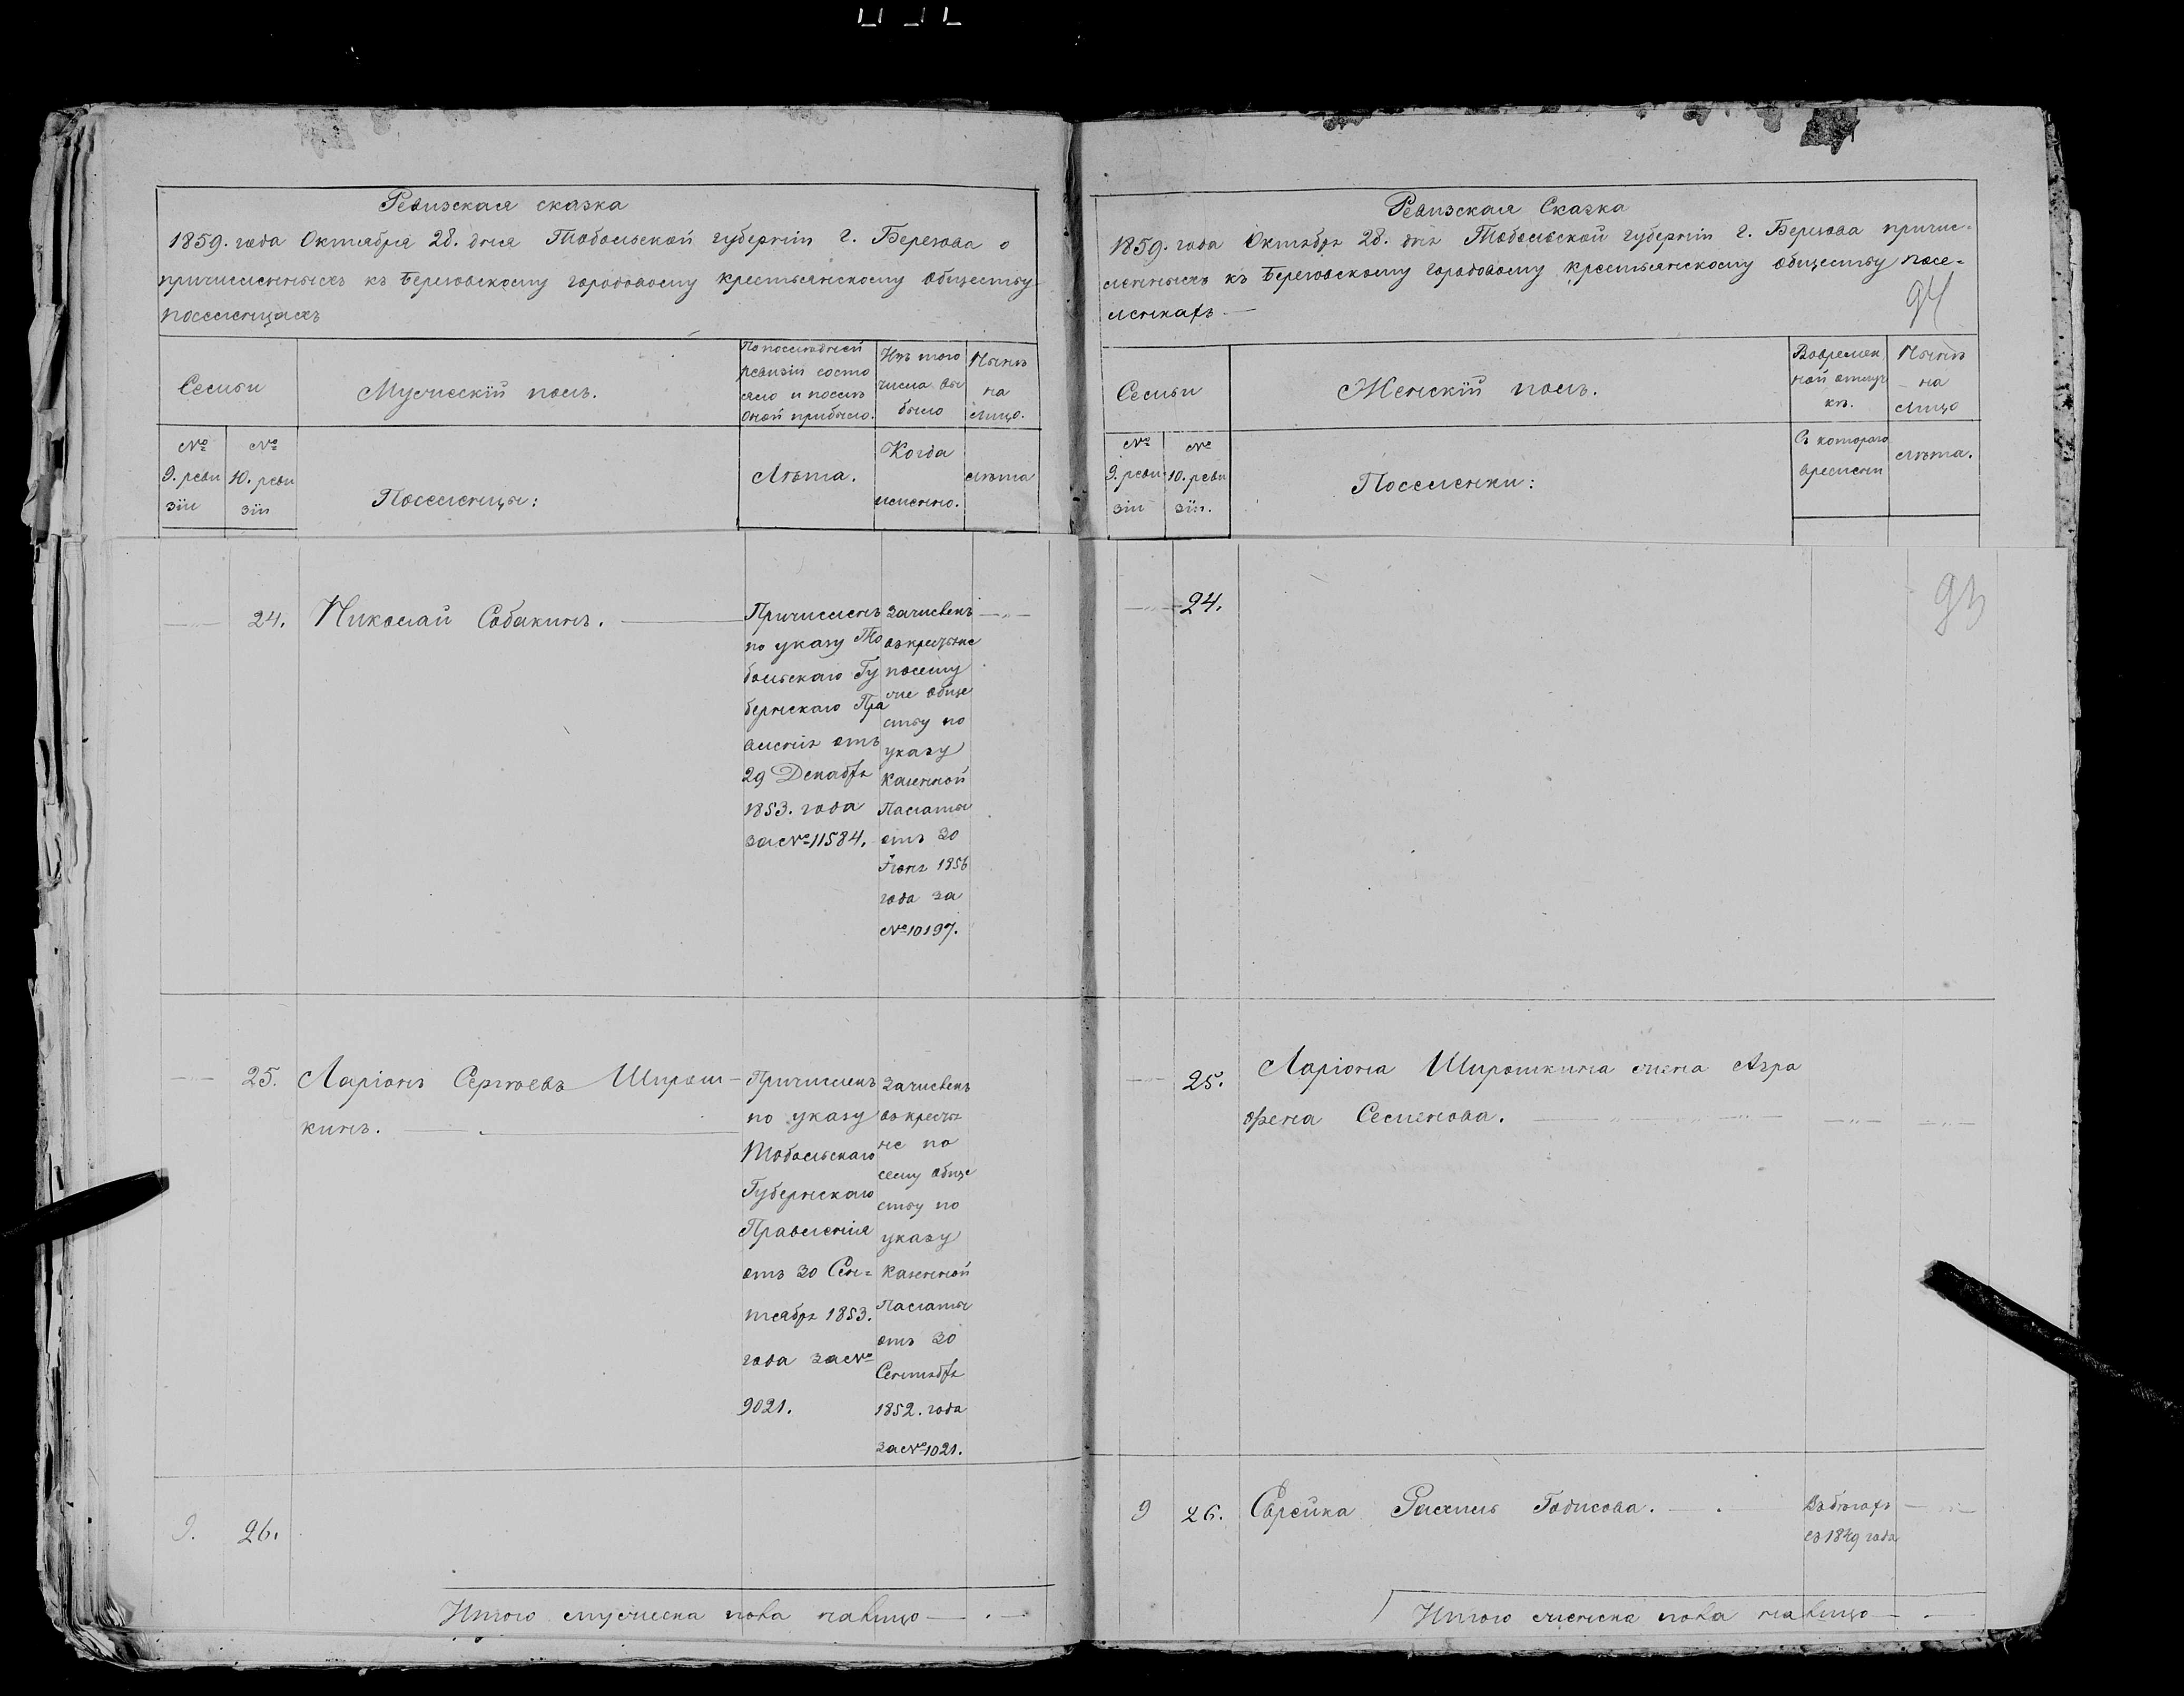 Ревизская сказка
1859. года Октября 28. дня Тобольской губернiи г. Березова о
причисленныхъ къ Березовскому городовому крестьянскому обществу
поселенцахъ
Семьи
Мужескiй полъ.
По последней
ревизiи состо
яло и после
оной прибыло.
Изъ того
числа вы
было
Нынѣ
на
лицо.
№
9. реви
зiи
№
10. реви
зiи
Поселенцы:
Лѣта.
Когда
именно.
лѣта
24. Николай Собакинъ.
Причисленъ
по указу То
больскаго Гу
бернскаго Пра
вленiя отъ
29 Декабря
1853. года
за № 11584.
Зачисленъ
въ крестьяне
по сему
же обще
ству по
указу
Казенной
Палаты
отъ 30
Iюня 1856
года за
№ 10197.
25. Ларiонъ Сергѣевъ Широш-
кинъ.
Причисленъ
по указу
Тобольскаго
Губернскаго
Правленiя
отъ 30 Сен=
тября 1853.
года за №
9021.
Зачисленъ
въ крестья
не по
сему обще
ству по
указу
Казенной
Палаты
отъ 30
Сентября
1852. года
за № 1021.
9. 26.
Итого мужеска пола налицо
Ревизская Сказка
1859. года Октября 28. дня Тобольской губернiи г. Березова причис=
ленныхъ къ Березовскому городовому крестьянскому обществу посе=
ленкахъ
94
Семьи
Женскiй полъ.
Вовремен
ной отлуч
кѣ.
Нынѣ
на
лицо
№
9. реви
зiи
№
10. реви
зiи.
Поселенки:
Съ котораго
времени
лѣта.
24.
93
25. Ларiона Широшкина жена Агра
фена Семенова.
9 26. Еврейка Рахиль
Въ бѣгахъ
съ 1849 года
Итого женска пола налицо